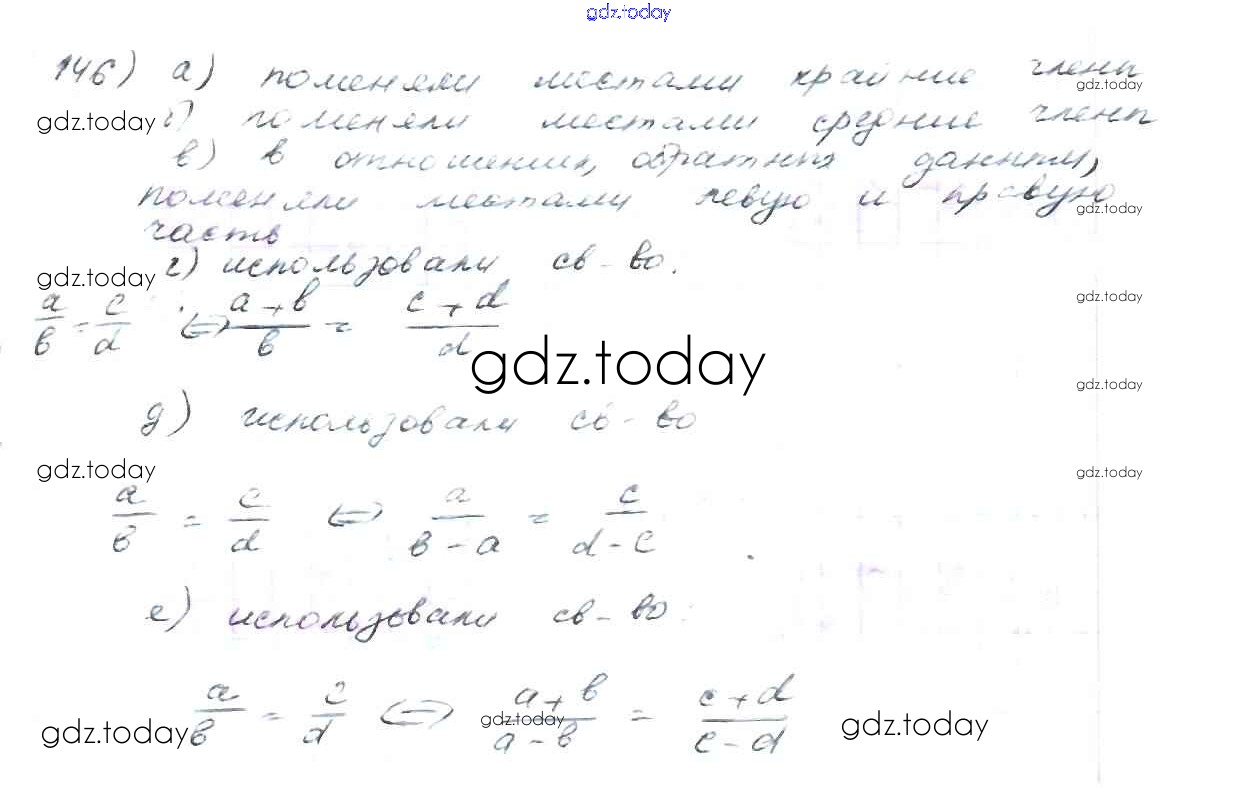 gdz.today
146) а) поменяли местами крайние члены
gdz.today
gdz.today б) поменяли местами средние члены
в) в отношениях, обратных данным,
поменяли местами левую и правую
gdz.today
часть
gdz.today г) использовали св-во.
a/b = c/d ⇔ (a+b)/b = (c+d)/d
gdz.today
gdz.today
gdz.today
д) использовали св-во
gdz.today
gdz.today
a/b = c/d ⇔ a/(b-a) = c/(d-c)
е) использовали св-во:
a/b = c/d ⇔ (a+b)/(a-b) = (c+d)/(c-d)
gdz.today
gdz.today
gdz.today